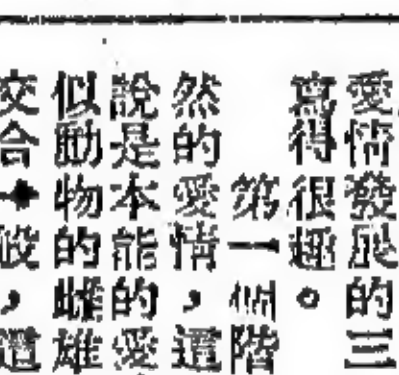 愛情發展的三
寫得很趣。
第一個階
然的愛情，這
說是本能的愛
似動物的雌雄
交合一般，這